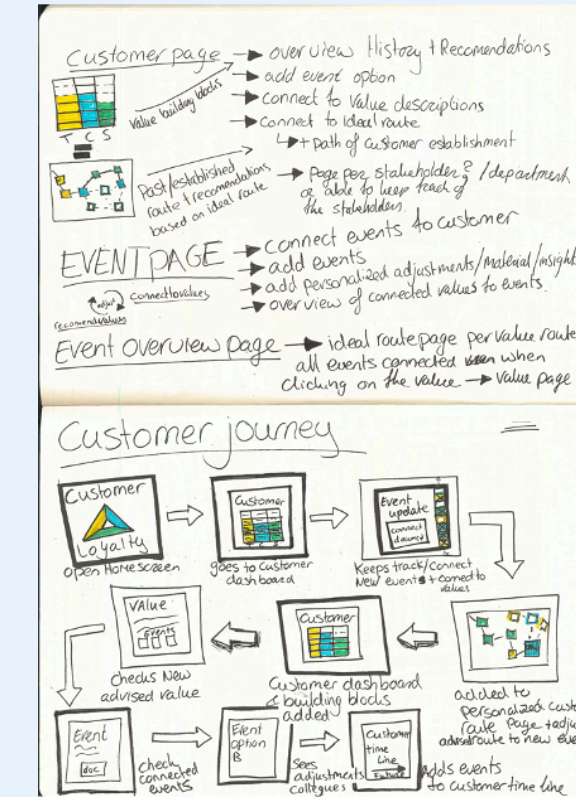 Customer page → overview History + Recomendations
→ add event option
→ connect to Value descriptions
→ connect to ideal route
↳ + path of customer establishment
T C S
Value building blocks
Past/established
route + recomendations
based on ideal route
→ page per stakeholder? / department
or able to keep track of
the stakeholders.
EVENTPAGE → connect events to customer
→ add events
→ add personalized adjustments/material/insight
→ overview of connected values to events.
adjust
connectovalues
recomendvalues
Event overview page → ideal route page per value route
all events connected when
clicking on the value → value page
Customer journey
Customer
Loyalty
open Homescreen
Customer
goes to customer
dashboard
Event
update
connect
Keeps track/connect
New events + connect to
values
added to
personalized
route page
route to new
Customer
Customer dashboard
& building blocks
added
Value
Events
checks New
advised value
Event
doc
check
connected
events
Event
option
B
Sees
adjustments
collegues
Customer
time
line
Adds events
to customer time line